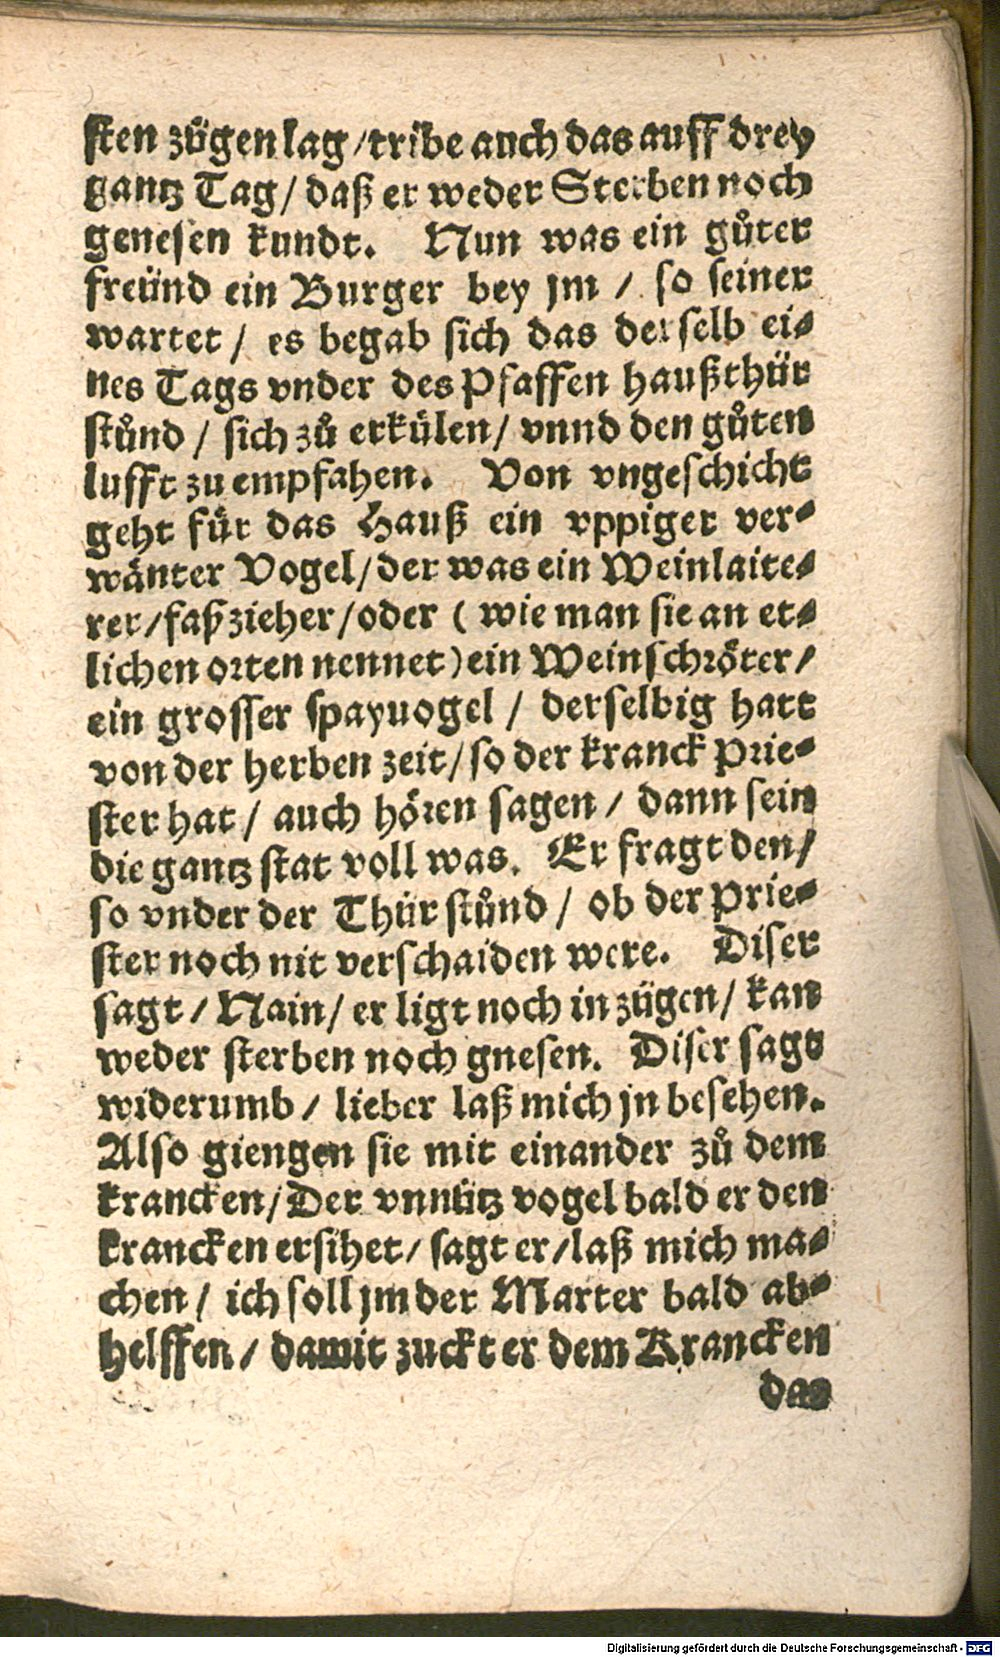 sten zügen lag / tribe auch das auff drey
gantz Tag / daß er weder Sterben noch
genesen kundt. Nun was ein gůter
freünd ein Burger bey jm / so seiner
wartet / es begab sich das derselb ei⸗
nes Tags vnder des Pfaffen haußthür
stůnd / sich zů erkülen / vnnd den gůten
lufft zu empfahen. Von vngeschicht
geht für das Hauß ein vppiger ver⸗
wänter Vogel / der was ein Weinlaite⸗
rer / faßzieher / oder ( wie man sie an et⸗
lichen orten nennet ) ein Weinschröter /
ein grosser spayuogel / derselbig hatt
von der herben zeit / so der kranck Prie⸗
ster hat / auch hören sagen / dann sein
die gantz stat voll was. Er fragt den /
so vnder der Thür stůnd / ob der Prie⸗
ster noch nit verschaiden were. Diser
sagt / Nain / er ligt noch in zügen / kan
weder sterben noch gnesen. Diser sagt
widerumb / lieber laß mich jn besehen.
Also giengen sie mit einander zů dem
krancken / Der vnnütz vogel bald er den
krancken ersihet / sagt er / laß mich ma⸗
chen / ich soll jm der Marter bald ab⸗
helffen / damit zuckt er dem Krancken
das
Digitalisierung gefördert durch die Deutsche Forschungsgemeinschaft - DFG